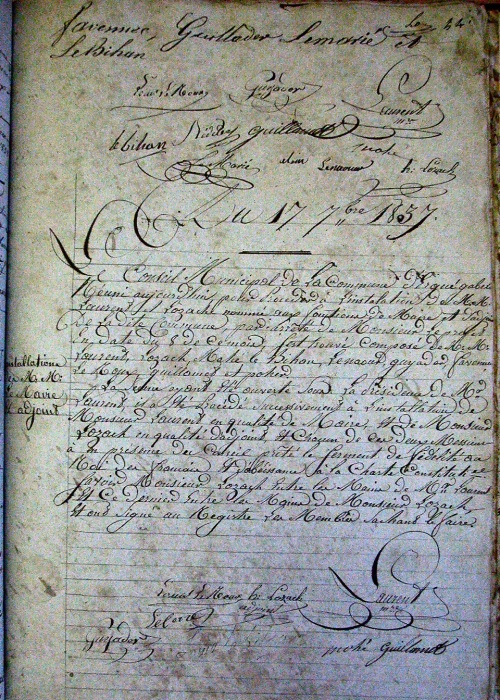 favennec, Guillador Lemarié et
Le Bihan
44
Guyador
Laurent
mre
Le bihan Nédélec Guillaumet
Marié Lenaour h. Lozach
Du 17 7bre 1837.
Le Conseil Municipal de la Commune
Réunie aujourd'hui pour procéder à l'installation de MM.
Laurent et Lozach nommé aux fonctions de Maire et
de la dite Commune par arrêté de Monsieur le préfet
En date du 8 de ce mois, s'est trouvé Composé de M. M.
Laurent, Lozach, Mahé le bihan, Lenaour, guyader, favennec
Le Roux, guillaumet et
La séance ayant été ouverte sous la présidence de Mr
Laurent, il a été procédé successivement à l'installation de
Monsieur Laurent en qualité de Maire, et de Monsieur
Lozach en qualité d'adjoint, et Chacun de ces deux Messieurs
a en présence du Conseil prêté le serment de fidélité au
Roi des français et d'obéissance à la Charte Constitutelle
Savoir Monsieur Lozach entre les Mains de Mr Laurent
Et Ce dernier entre les Mains de Monsieur Lozach,
Et ont signé au Registre les Membres sachant le faire.
installation
de M. M.
le Maire
et adjoint
h. Lozach
adjoint
Laurent
mre
Le Corre
Guyador
mahé Guillaumet